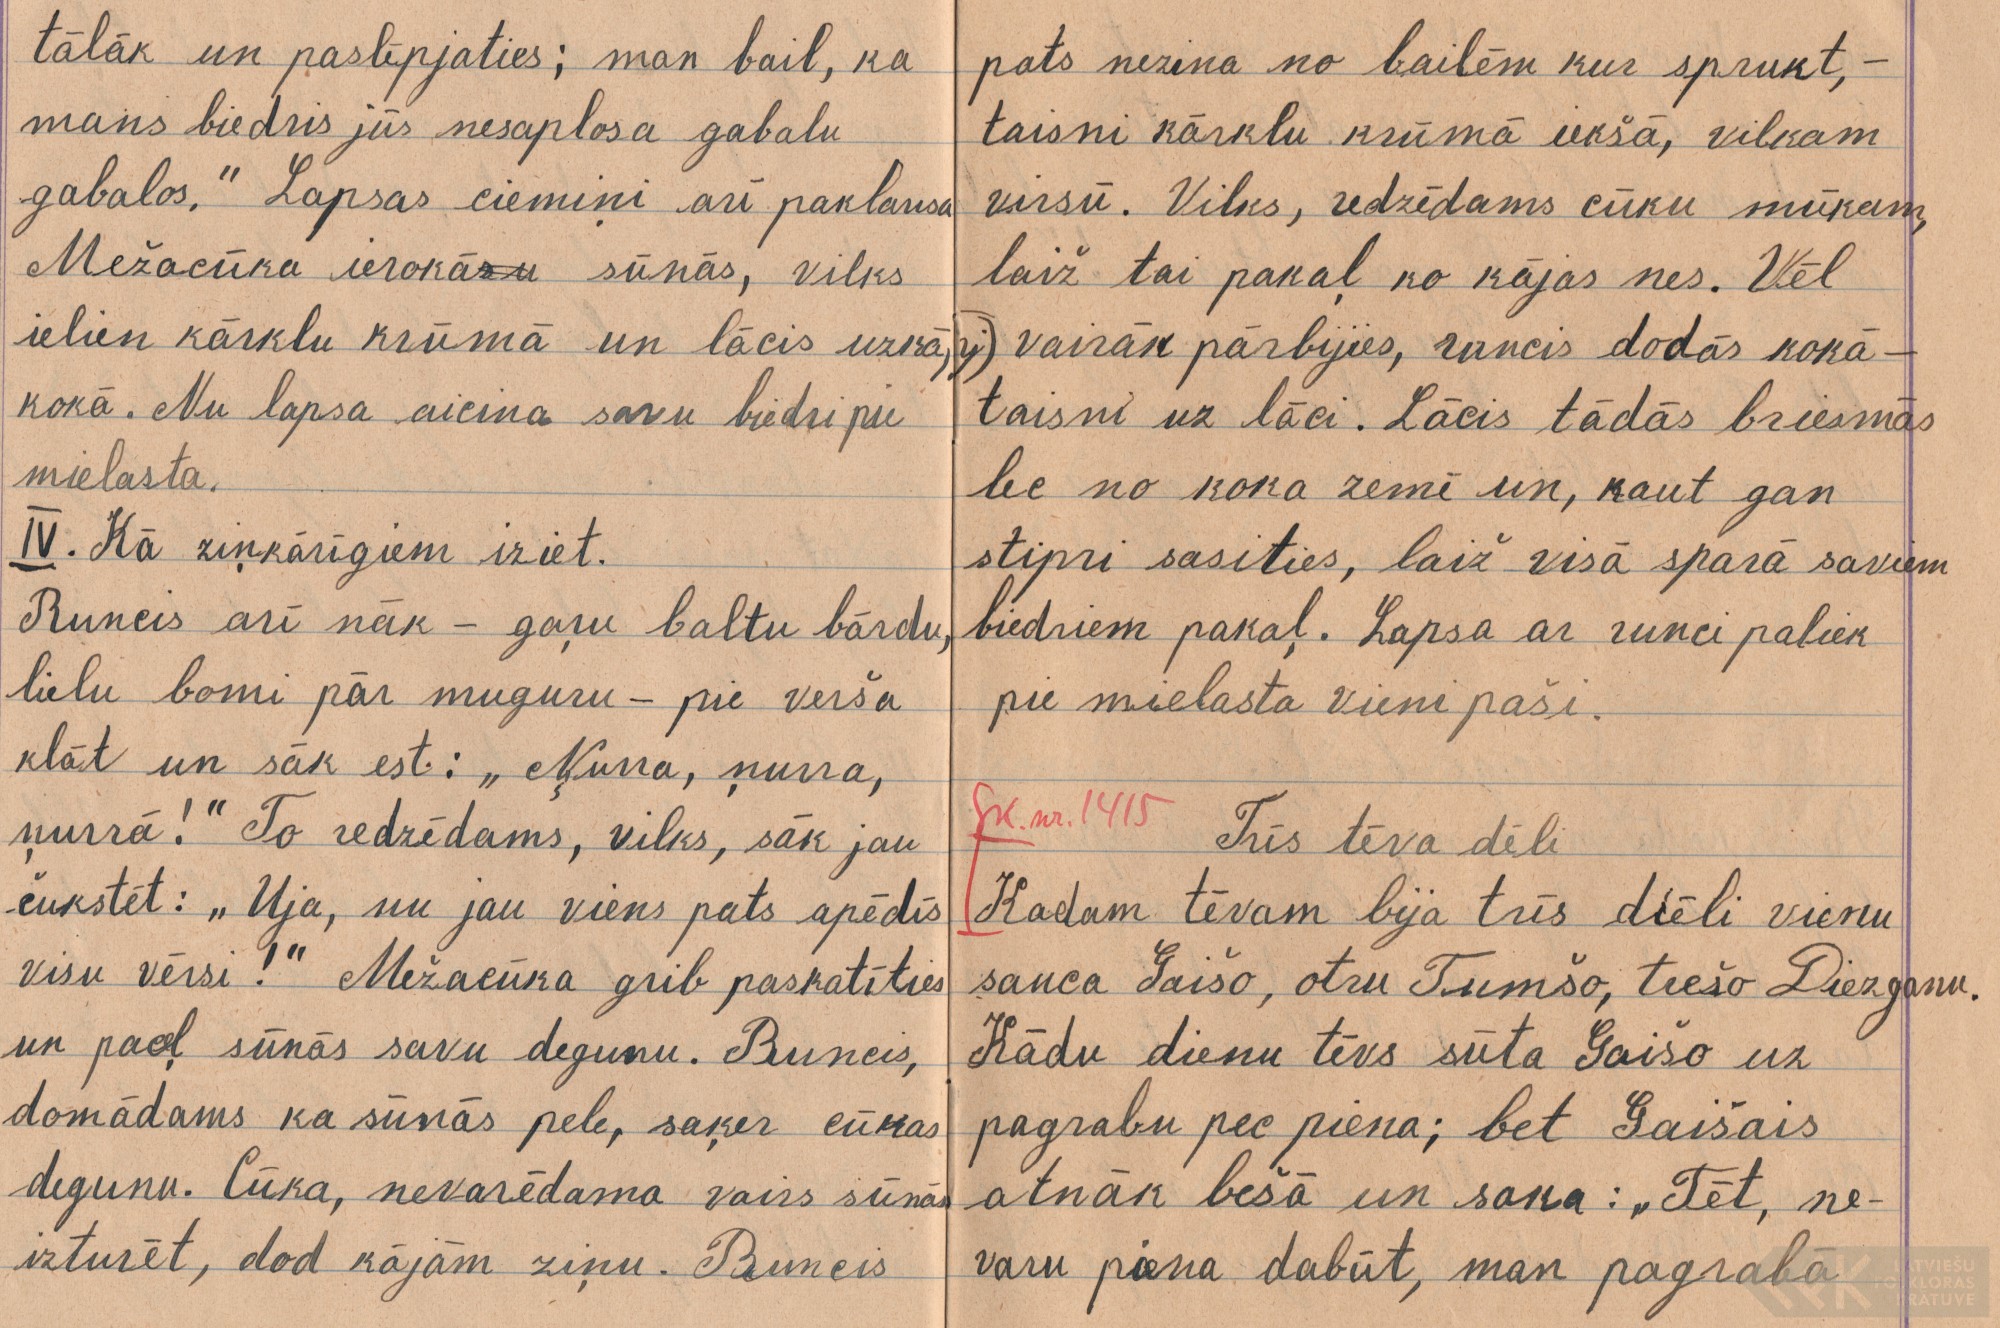 tālāk un paslēpjaties; man bail, ka
mans biedris jūs nesaplosa gabalu
gabalos." Lapsas ciemiņi arī paklausa
Mežacūka ierokās̶u̶ sūnās, vilks
ielien kārklu krūmā un lācis uzkāpj
kokā. Nu lapsa aicina savu biedri pie
mielasta.
IV. Kā ziņkārīgiem iziet.
Runcis arī nāk – gaŗu baltu bārdu,
lielu bomi pār muguru – pie verša
klāt un sāk est: „Ņurra, ņurra,
ņurrā!" To redzēdams, vilks, sāk jau
čukstēt: „Uja, nu jau viens pats apēdīs
visu vērsi!" Mežacūka grib paskatīties
un paceļ sūnās savu degunu. Runcis,
domādams ka sūnās pele, saķer cūkas
degunu. Cūka, nevarēdama vairs sūnās
izturēt, dod kājām ziņu. Runcis
pats nezina no bailēm kur sprukt, –
taisni kārklu krūmā iekšā, vilkam
virsū. Vilks, redzēdams cūku mūkam,
laiž tai pakaļ ko kājas nes. Vēl
vairāk pārbijies, runcis dodās kokā –
taisni uz lāci. Lācis tādās briesmās
lec no koka zemē un, kaut gan
stipri sasities, laiž visā sparā saviem
biedriem pakaļ. Lapsa ar runci paliek
pie mielasta vieni paši.
gk. nr. 1415
Trīs tēva dēli
Kadam tēvam bija trīs dēli vienu
sauca Gaišo, otru Tumšo, trešo Diezganu.
Kādu dienu tēvs sūta Gaišo uz
pagrabu pec piena; bet Gaišais
atnāk bešā un saka: „Tēt, ne-
varu piena dabūt, man pagrabā
LATVIEŠU
FOLKLORAS
KRĀTUVE